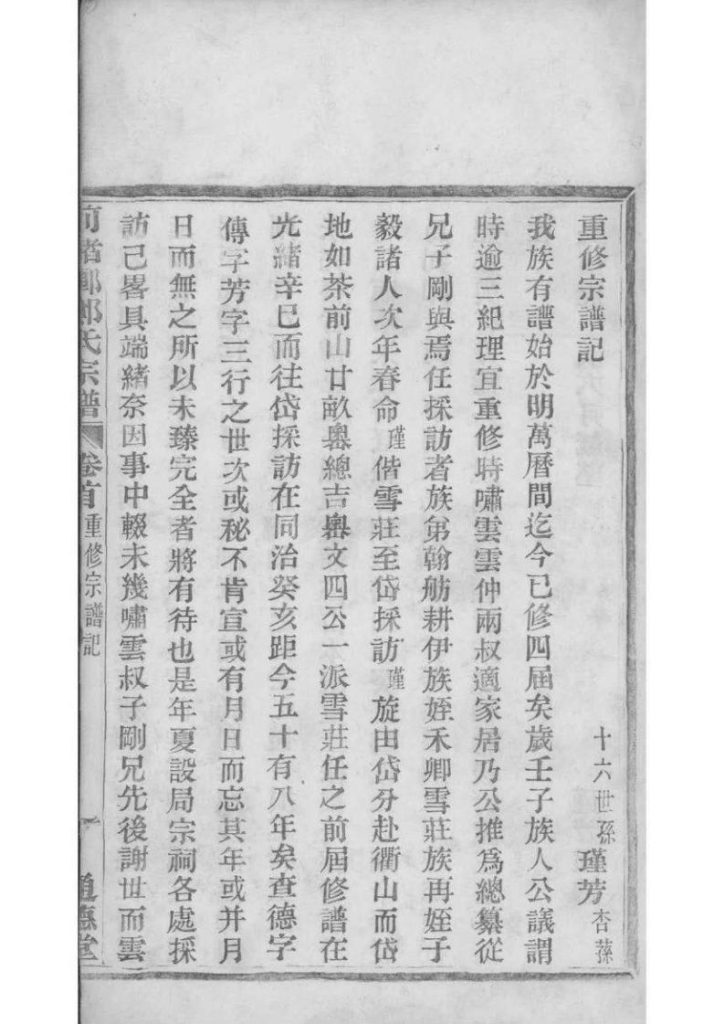 重修宗譜記
十六世孫 瑾芳 杏蓀
我族有譜始於明萬曆間迄今已修四屆矣歲壬子族人公議謂
時逾三紀理宜重修時嘯雲雲仲兩叔適家居乃公推爲總纂從
兄子剛與焉任採訪者族第翰舫耕伊族姪禾卿雪莊族再姪子
毅諸人次年春命瑾偕雪莊至岱採訪瑾旋由岱分赴衢山而岱
地如茶前山廿畝嶴總吉嶴文四公一派雪莊任之前屆修譜在
光緒辛巳而往岱採訪在同治癸亥距今五十有八年矣查德字
傳字芳字三行之世次或秘不肯宣或有月日而忘其年或并月
日而無之所以未臻完全者將有待也是年夏設局宗祠各處採
訪已畧具端緒奈因事中輟未幾嘯雲叔子剛兄先後謝世而雲
郎氏宗譜 卷首 重修宗譜記 一 道德堂